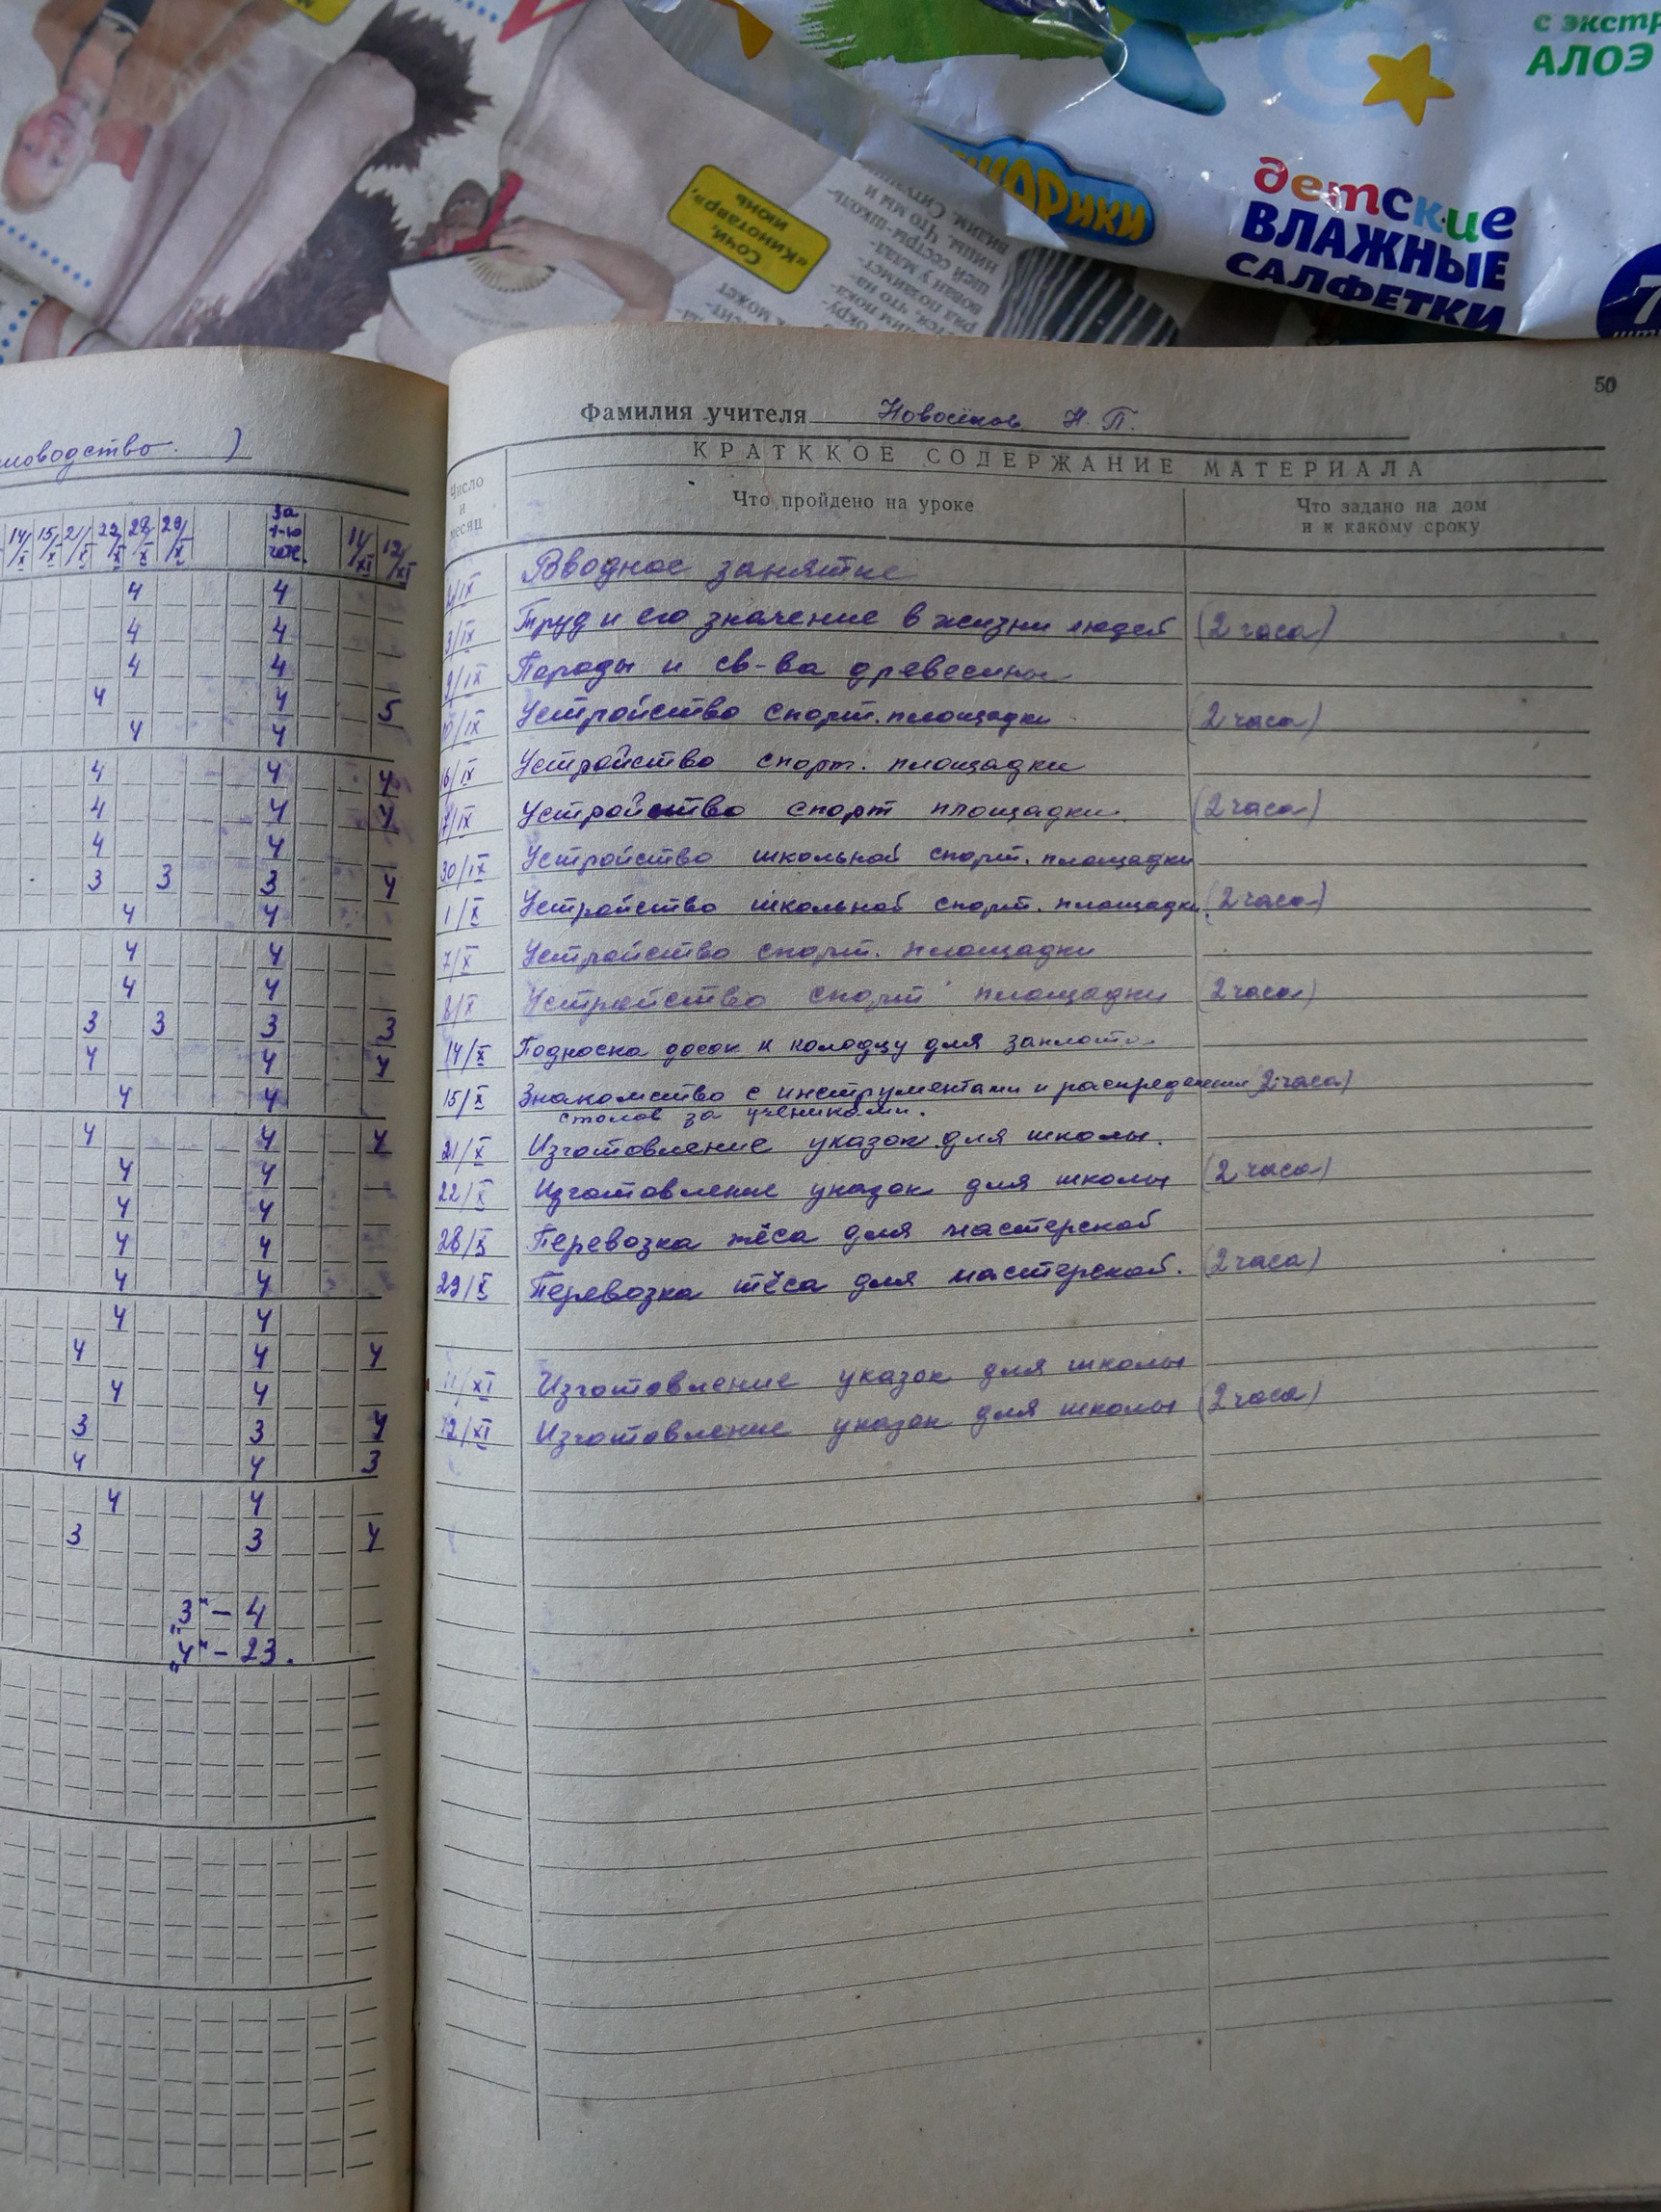 с экстр
АЛОЭ
детские
ВЛАЖНЫЕ
САЛФЕТКИ
Сочи,
«Кинотавр»,
июнь
50
Фамилия учителя Новосёлов Н. П.
КРАТККОЕ СОДЕРЖАНИЕ МАТЕРИАЛА
Число и месяц
Что пройдено на уроке
Что задано на дом
и к какому сроку
2/IX Вводное занятие
3/IX Труд и его значение в жизни людей (2 часа)
9/IX Породы и св-ва древесины
10/IX Устройство спорт. площадки (2 часа)
16/IX Устройство спорт. площадки
17/IX Устройство спорт площадки. (2 часа)
30/IX Устройство школьной спорт. площадки
1/X Устройство школьной спорт. площадки. (2 часа)
7/X Устройство спорт. площадки
8/X Устройство спорт площадки (2 часа)
14/X Подноска досок к колодцу для
15/X Знакомство с инструментами и распределение (2 часа)
столов за учениками.
21/X Изготовление указок для школы.
22/X Изготовление указок для школы (2 часа)
28/X Перевозка тёса для мастерской
29/X Перевозка тёса для мастерской. (2 часа)
11/XI Изготовление указок для школы
12/XI Изготовление указок для школы (2 часа)
14/X 15/X 21/X 22/X 28/X 29/X за 1-ю четв. 11/XI 12/XI
4 4
4 4
4 4
4 4 5
4 4
4 4 4
4 4 4
4 4
3 3 3 4
4 4
4 4
4 4
3 3 3 3
4 4 4
4 4
4 4 4
4 4
4 4
4 4
4 4
4 4
4 4 4
4 4
3 3 4
4 4 3
4 4
3 3 4
„3" - 4
„4" - 23.